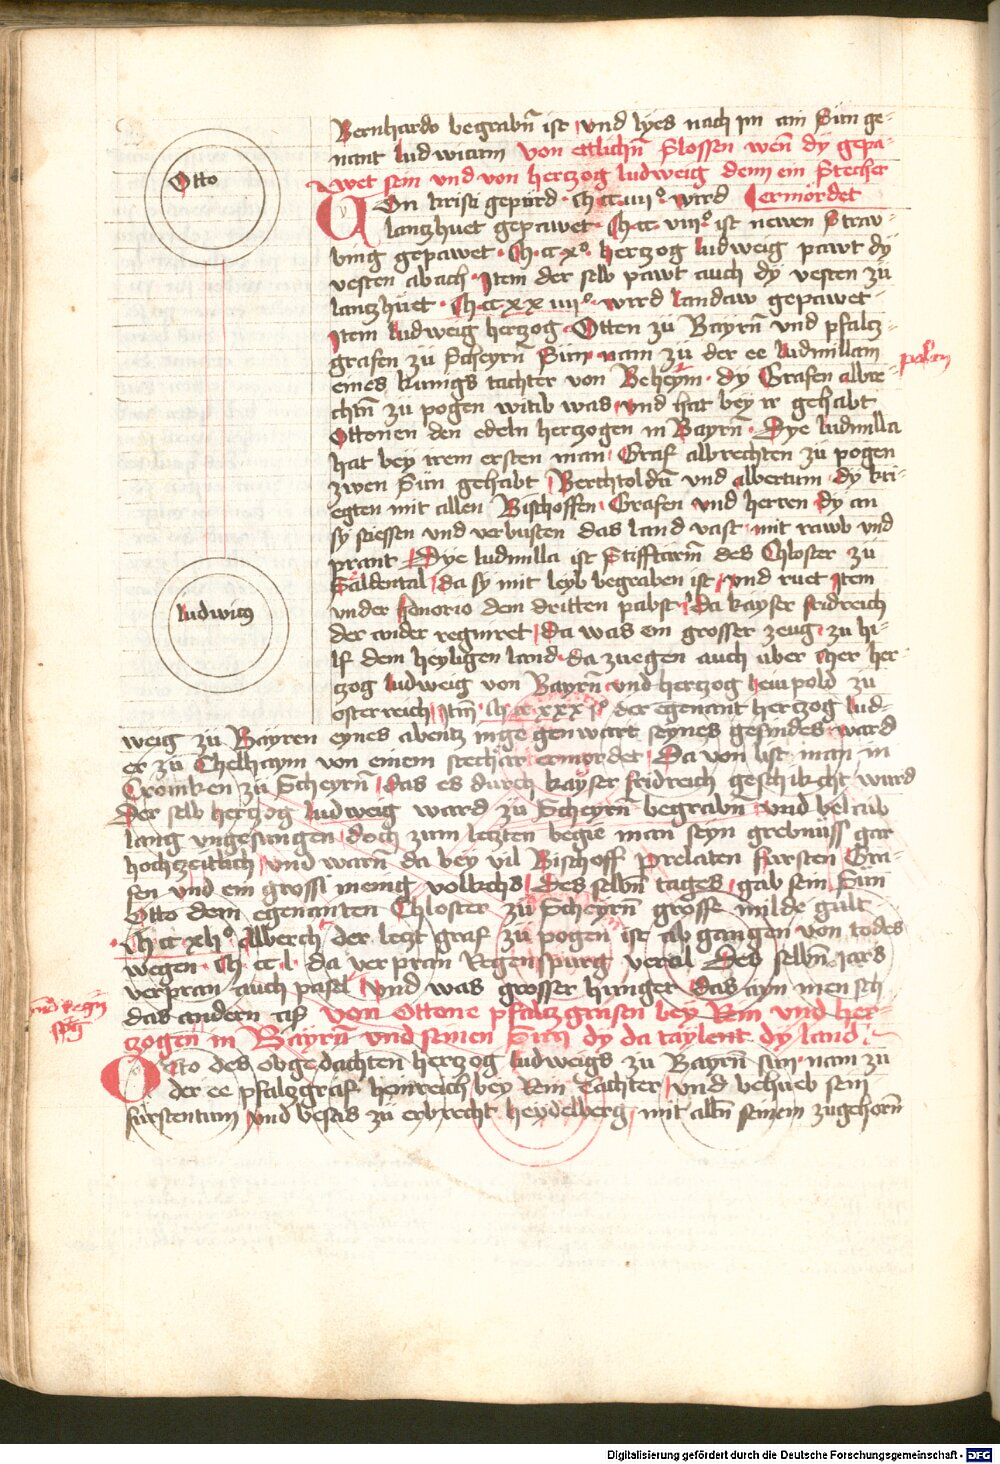 Otto
Bernhardo begrabn̄ ist und lyes nach im ain Sun ge-
nant ludwicum von ettlichn̄ Slossen wen̄ dy gepa-
wet sein und von hertzog ludweig dem ein Stecher
ermördet
Von kristi gepürd · M·cc·iiii° · wird
lantzhuet gepawet · M·cc·viii° ist newen Straw-
bing gepawet · M·cc·x° hertzog ludweig pawt dy
vesten abach · Item der selb pawt auch dy vesten zu
lantzhuet · M·cc·xxiiii° · wird landaw gepawet ·
Item ludweig hertzog Otten zu Bayrn̄ vnd pfaltz-
grafen zu Scheyrn̄ Sun nam zu der ee ludmillam
eines kunigs tachter von Beheym · dy Grafen albre-
chtn̄ zu pogen witib was und hat bey ir gehabt
Ottonen den edeln hertzogen in Bayrn̄ · Dye ludmilla
hat bey irem ersten man Graf albrechten zu pogen
zwen Sün gehabt Berchtoldū und albertum · dy kri-
egten mit allen Bischoffen Grafen und herren dy an
sy stiessen und verbusten das land vast mit rawb vnd
prant Dye ludmilla ist Stifftärin̄ des Chloster zu
Säldental da sy mit leyb begraben ist und ruet Item
vnder honorio dem dritten pabst da kayser fridreich
der ander regniret da was ein grosser zeug zu hi-
lf dem heyligen land da zuegen auch über mer her-
tzog ludweig von Bayrn̄ und hertzog lewpold zu
osterreich Itm̄ M·cc·xxxi° der egenant hertzog lud-
ludwicus
weig zu Bayren eynes abentz in gegenwart seynes gesindes ward
er zu Chelhaym von einem stechär ermordet Da von list man in
Croniken zu Scheyrn̄ das es durch kayser fridreich geschikcht ward
Der selb hertzog ludweig ward zu Scheyrn̄ begrabn̄ und belaib
lang vngesungen doch zum letzten begie man seyn grebnüss gar
hochzeitlich und warn̄ da bey vil Bischoff Prelaten fursten Gra-
fen vnd ein grossi menig volkchs Des selbn̄ tages gab sein Sun
Otto dem egenanten Chloster zu Scheyrn̄ grosse milde gült
M·cc·xlii° Alberch der letzt graf zu pogen ist ab gangen von todes
wegen · M·cc·l · da verpran Regenspurg veral Des selbn̄ iars
verpran auch pasel und was grosser hunger das ayn mensch
das andern aß von Ottone pfaltzgrafen bey Rin vnd her-
tzogen in Bayrn̄ vnd seinen Sün dy da taylent dy land
Otto des obgedachten hertzog ludweigs zu Bayrn̄ sun nam zu
der ee pfaltzgraf heinreich bey Rein Tachter und behueb sein
fürstentum und besas zu erbrecht heydelberg mit alln̄ seinem zugehorn̄
Digitalisierung gefördert durch die Deutsche Forschungsgemeinschaft - DFG